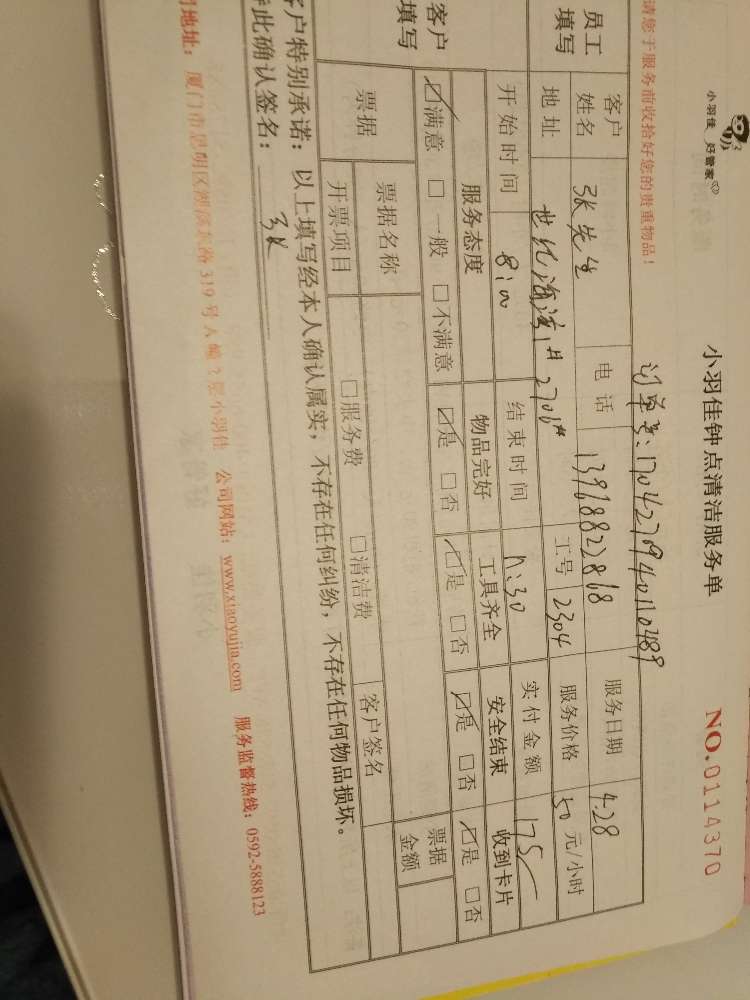 小羽佳 好管家
小羽佳钟点清洁服务单
NO.0114370
请您于服务前收拾好您的贵重物品！
订单号：1704270940110489
员工填写 客户姓名 张先生 电话 13968822868 服务日期 4.28
地址 世纪海湾 2706# 工号 2304 服务价格 50 元/小时
开始时间 8:00 结束时间 11:30 实付金额 175
客户填写 服务态度 物品完好 工具齐全 安全结束 收到卡片
☑满意 □一般 □不满意 ☑是 □否 ☑是 □否 ☑是 □否 ☑是 □否
票据 票据名称 票据金额
开票项目 □服务费 □清洁费 客户签名
客户特别承诺：以上填写经本人确认属实，不存在任何纠纷，不存在任何物品损坏。
特此确认签名：张
司地址：厦门市思明区湖滨东路 319 号 A 幢 2 层小羽佳 公司网站：www.xiaoyujia.com 服务监督热线：0592-5888123